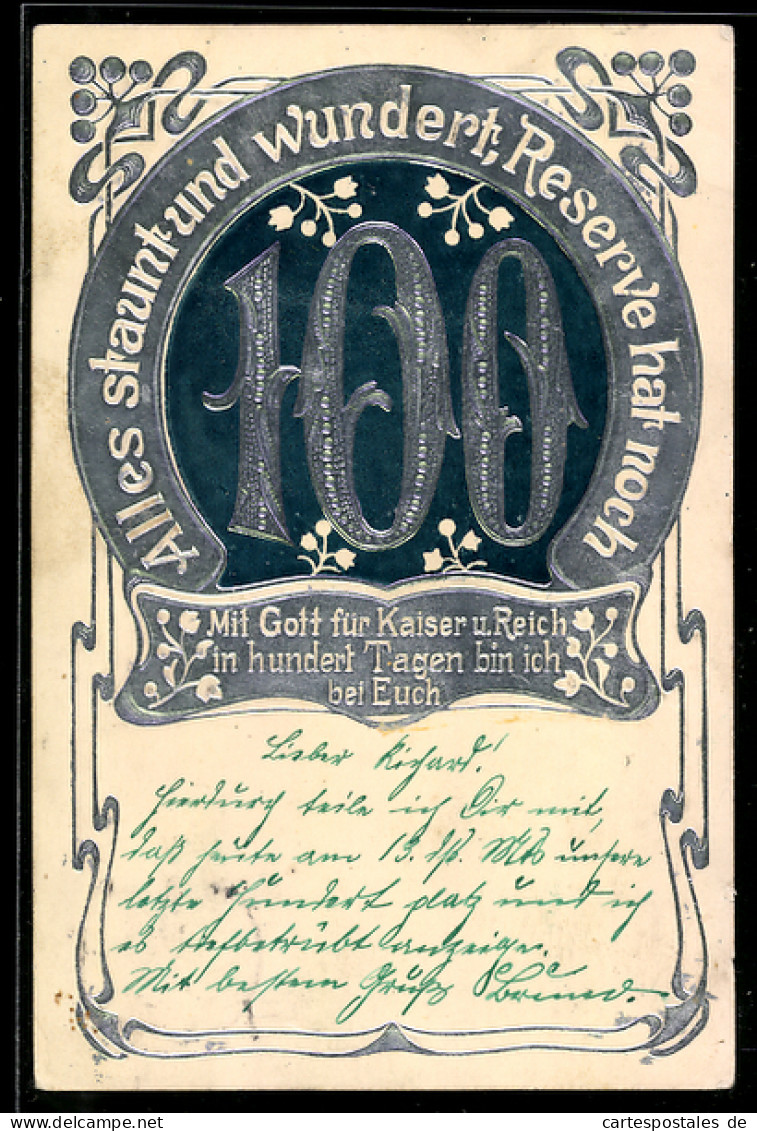 Alles staunt und wundert, Reserve hat noch
100
Mit Gott für Kaiser u. Reich
in hundert Tagen bin ich
bei Euch
Lieber Richard!
Hierdurch teile ich Dir mit,
daß heute am 13. ds. Mts unsere
letzte Hundert platz und ich
es tiefbetrübt anzeige.
Mit bestem Gruß
cartespostales de